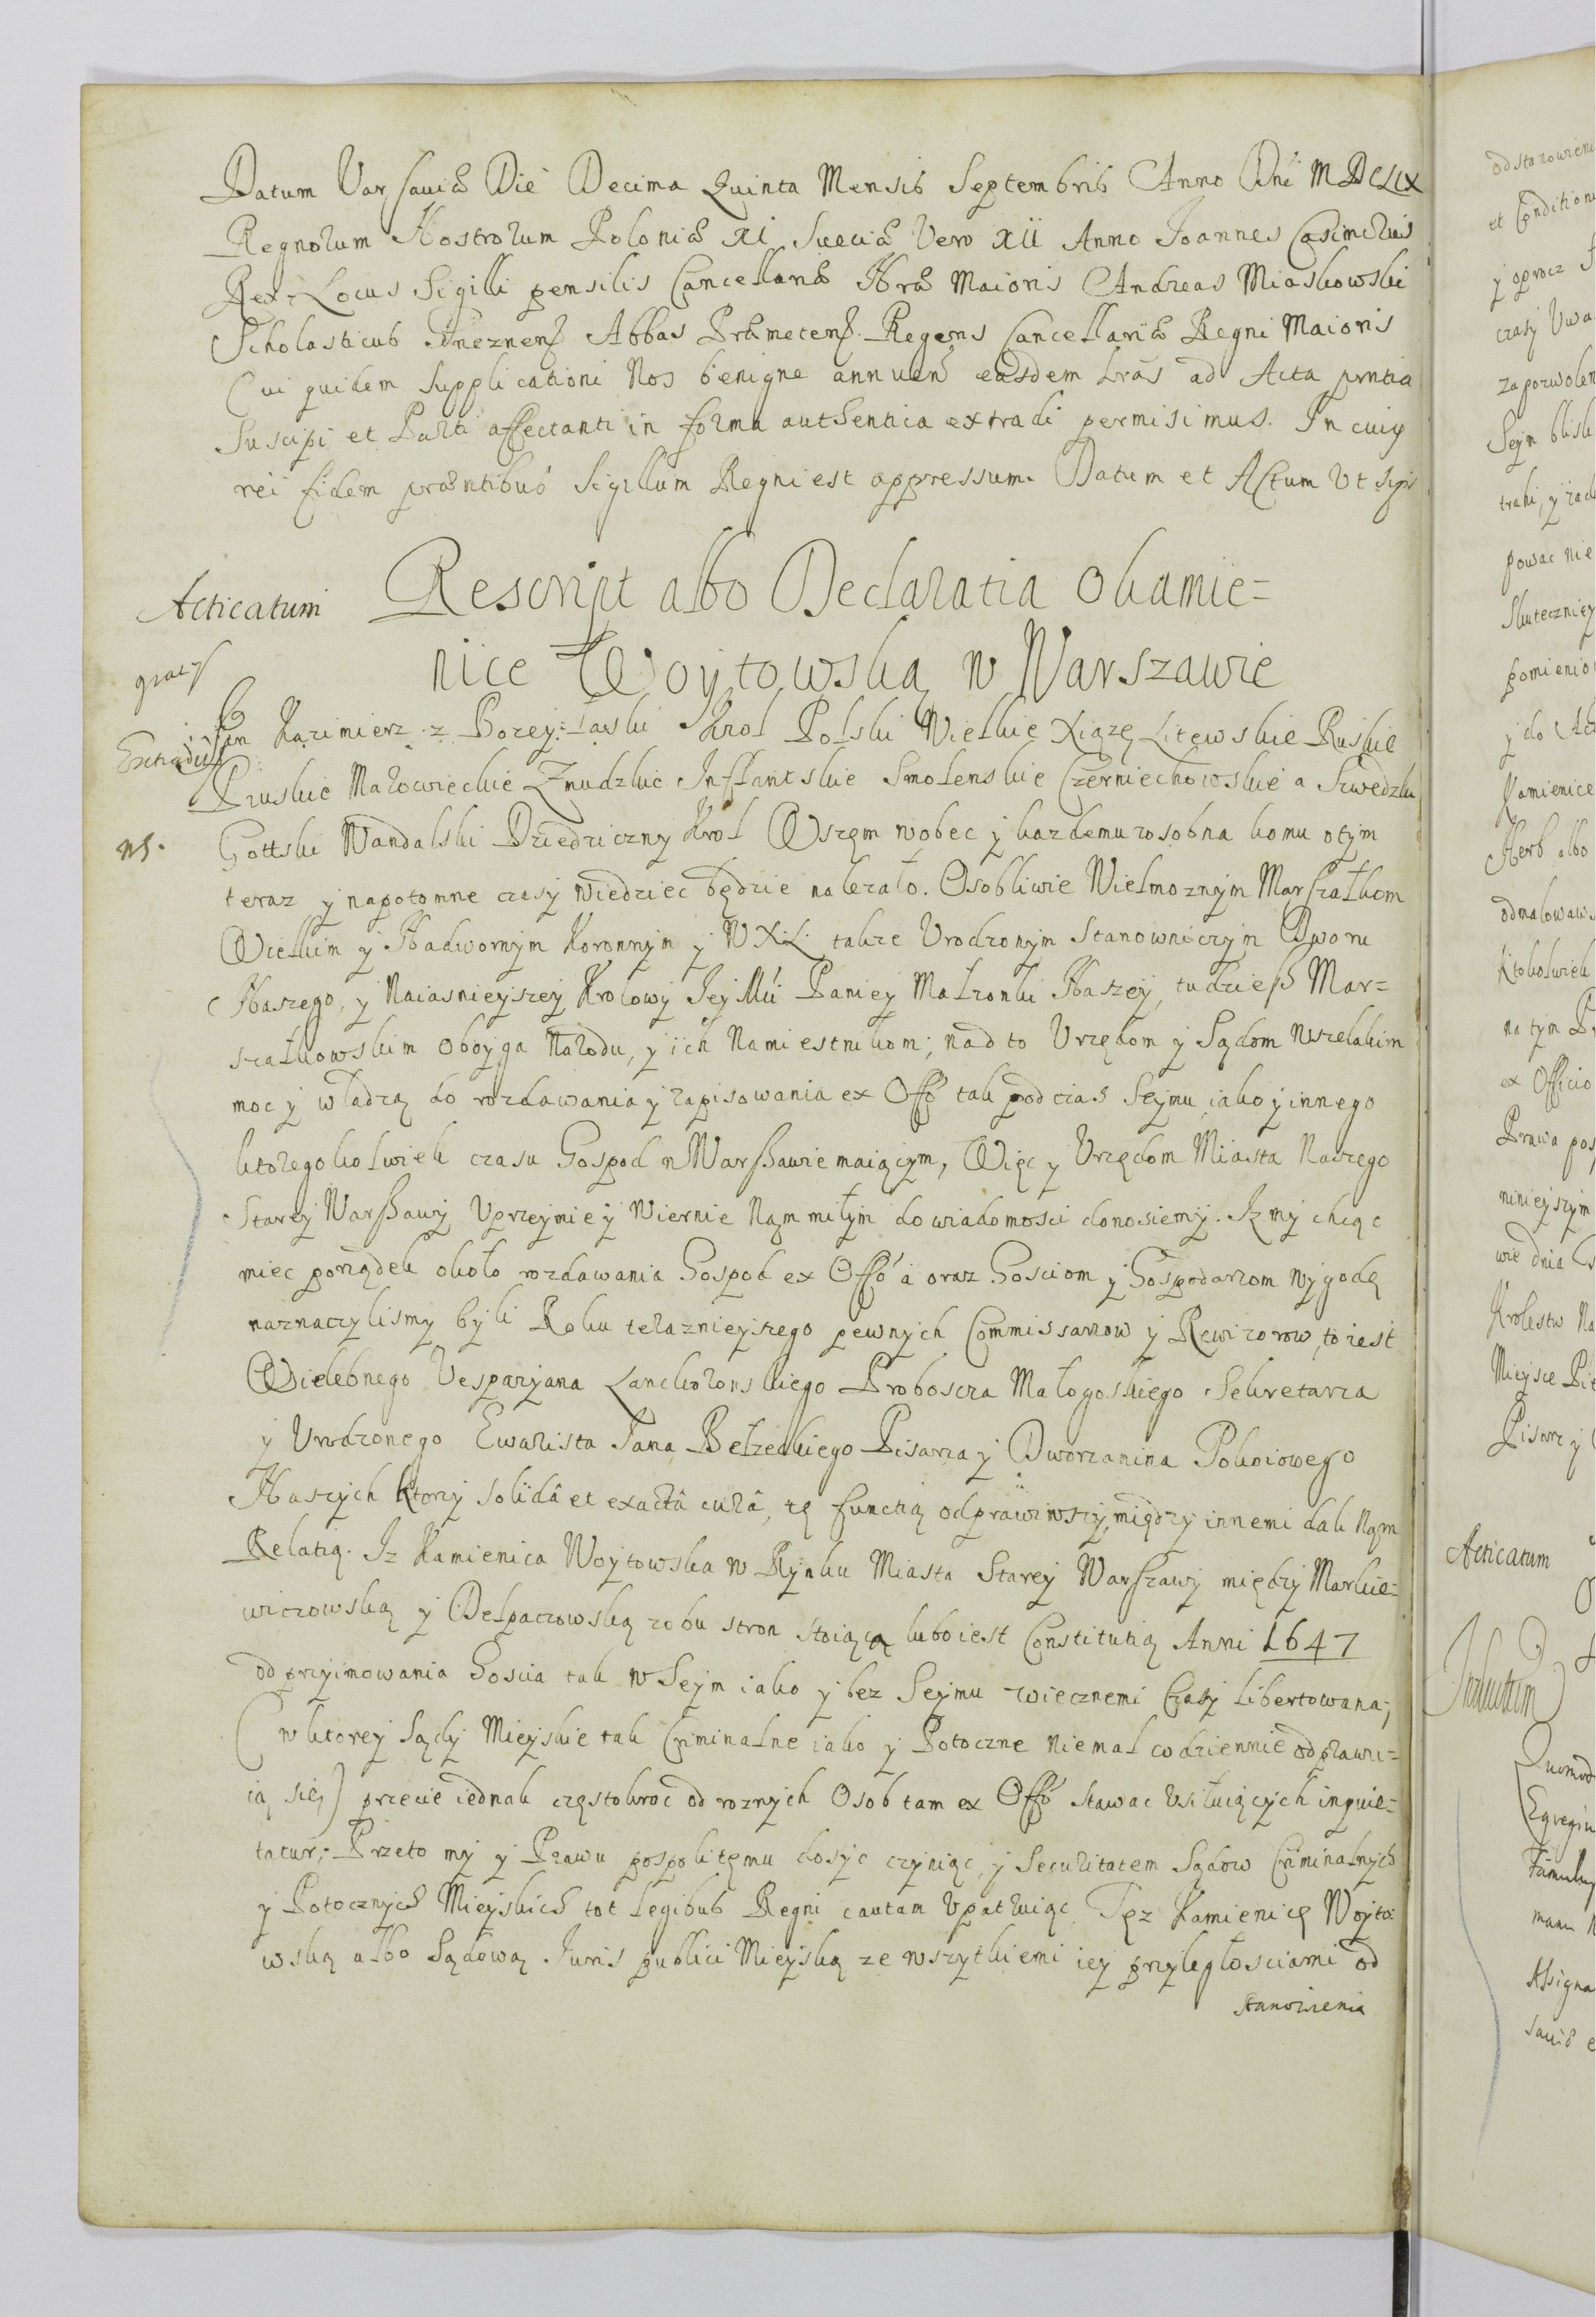 Datum Varsaviæ Die Decima Quinta Mensis Septembris Anno Dni MDCLIX
Regnorum Nostrorum Poloniæ XI Sueciæ Vero XII Anno Joannes Casimirus
Rex. Locus Sigilli pensilis Cancellariæ Nræ Maioris Andreas Miaskowski
Scholasticus Gneznens Abbas Præmetens. Regens Cancellariæ Regni Maioris
Cui quidem supplicationi Nos benigne annuen easdem Lras ad Acta prntia
Suscipi et Parti affectanti in forma authentica extradi permisimus. In cuius
rei fidem præntibus Sigillum Regni est appressum. Datum et Actum Ut supr
Acticatum
Rescript albo Declaratia o kamie=
nice Woytowską w Warszawie
Jan Kazimierz z Bozey Łaski Krol Polski Wielkie Xiązę Litewskie Ruskie
Pruskie Mazowieckie Zmudzkie Infflantskie Smolenskie Czerniechowskie a Szwedzki
Gottski Wandalski Dziedziczny Krol Wszem wobec y kazdemu zosobna komu otym
teraz y napotomne czasy wiedziec będzie nalezało. Osobliwie Wielmoznym Marszałkom
Wielkim y Nadwornym Koronnym y W.X.L. takze Urodzonym Stanowniczym Dworu
Naszego, y Naiasnieyszey Krolowy Jey Mci Paniey Małzonki Naszey, tudziesz Mar=
szałkowskim oboyga Narodu, y ich Namiestnikom; nad to Urzędom y Sądom wszelakim
moc y władzą do rozdawania y zapisowania ex Offo tak pod czas Seymu iako y innego
ktoregokolwiek czasu Gospod w Warszawie maiącym, Więc y Urzędom Miasta Naszego
Starey Warszawy Uprzeymie y Wiernie Nąm miłym do wiadomosci donosiemy. Iz my chcąc
miec porządek około rozdawania Gospod ex Offo a oraz Gosciom y Gospodarzom wygodę
naznaczylismy byli Roku teraznieyszego pewnych Commissarzow y Rewizorow, to iest
Wielebnego Vespazyana Lanckoronskiego Proboszcza Małogoskiego Sekretarza
y Urodzonego Ewarista Jana Bełzeckiego Pisarza y Dworzanina Pokoiowego
Naszych ktorzy solidâ et exactâ curâ, tę functią odprawiwszy, między innemi dali Nąm
Relatią. Iz Kamienica Woytowska w Rynku Miasta Starey Warszawy między Markie=
wiczowską y Delpaczowską z obu stron stoiąca lubo iest Constitutią Anni 1647
od przyimowania Goscia tak w Seym iako y bez Seymu wiecznemi Czasy libertowana;
(w ktorey Sądy Mieyskie tak Criminalne iako y Potoczne niemal codziennie odprawu=
ią się) przecie iednak częstokroc od roznych Osob tam ex Offo stawac usiłuiących inquie=
tatur; Przeto my y Prawu pospolitęmu dosyc czyniąc y Securitatem Sądow Criminalnych
y Potocznych Mieyskich tot legibus Regni cautam Upatruiąc Tęz Kamienicę Woyto=
wską albo Sądową Juris publici Mieyską ze wszytkiemi iey przyległosciami od
stanowienia
od stanowieni
et Condition
y oprocz
czasy Uwa
za pozwolen
Seym blisk
powac nie
Skuteczniey
pomienio
y do Act
Kamienice
Herb albo
odmalowaws
Ktokolwiek
na tym
ex Officio
Prawa pos
ninieyszym
wie dnia
Krolestw Na
Mieysce Pie
Pisarz y
Acticatum
Quomod
Egregiu
Famuly
manu
Assigna